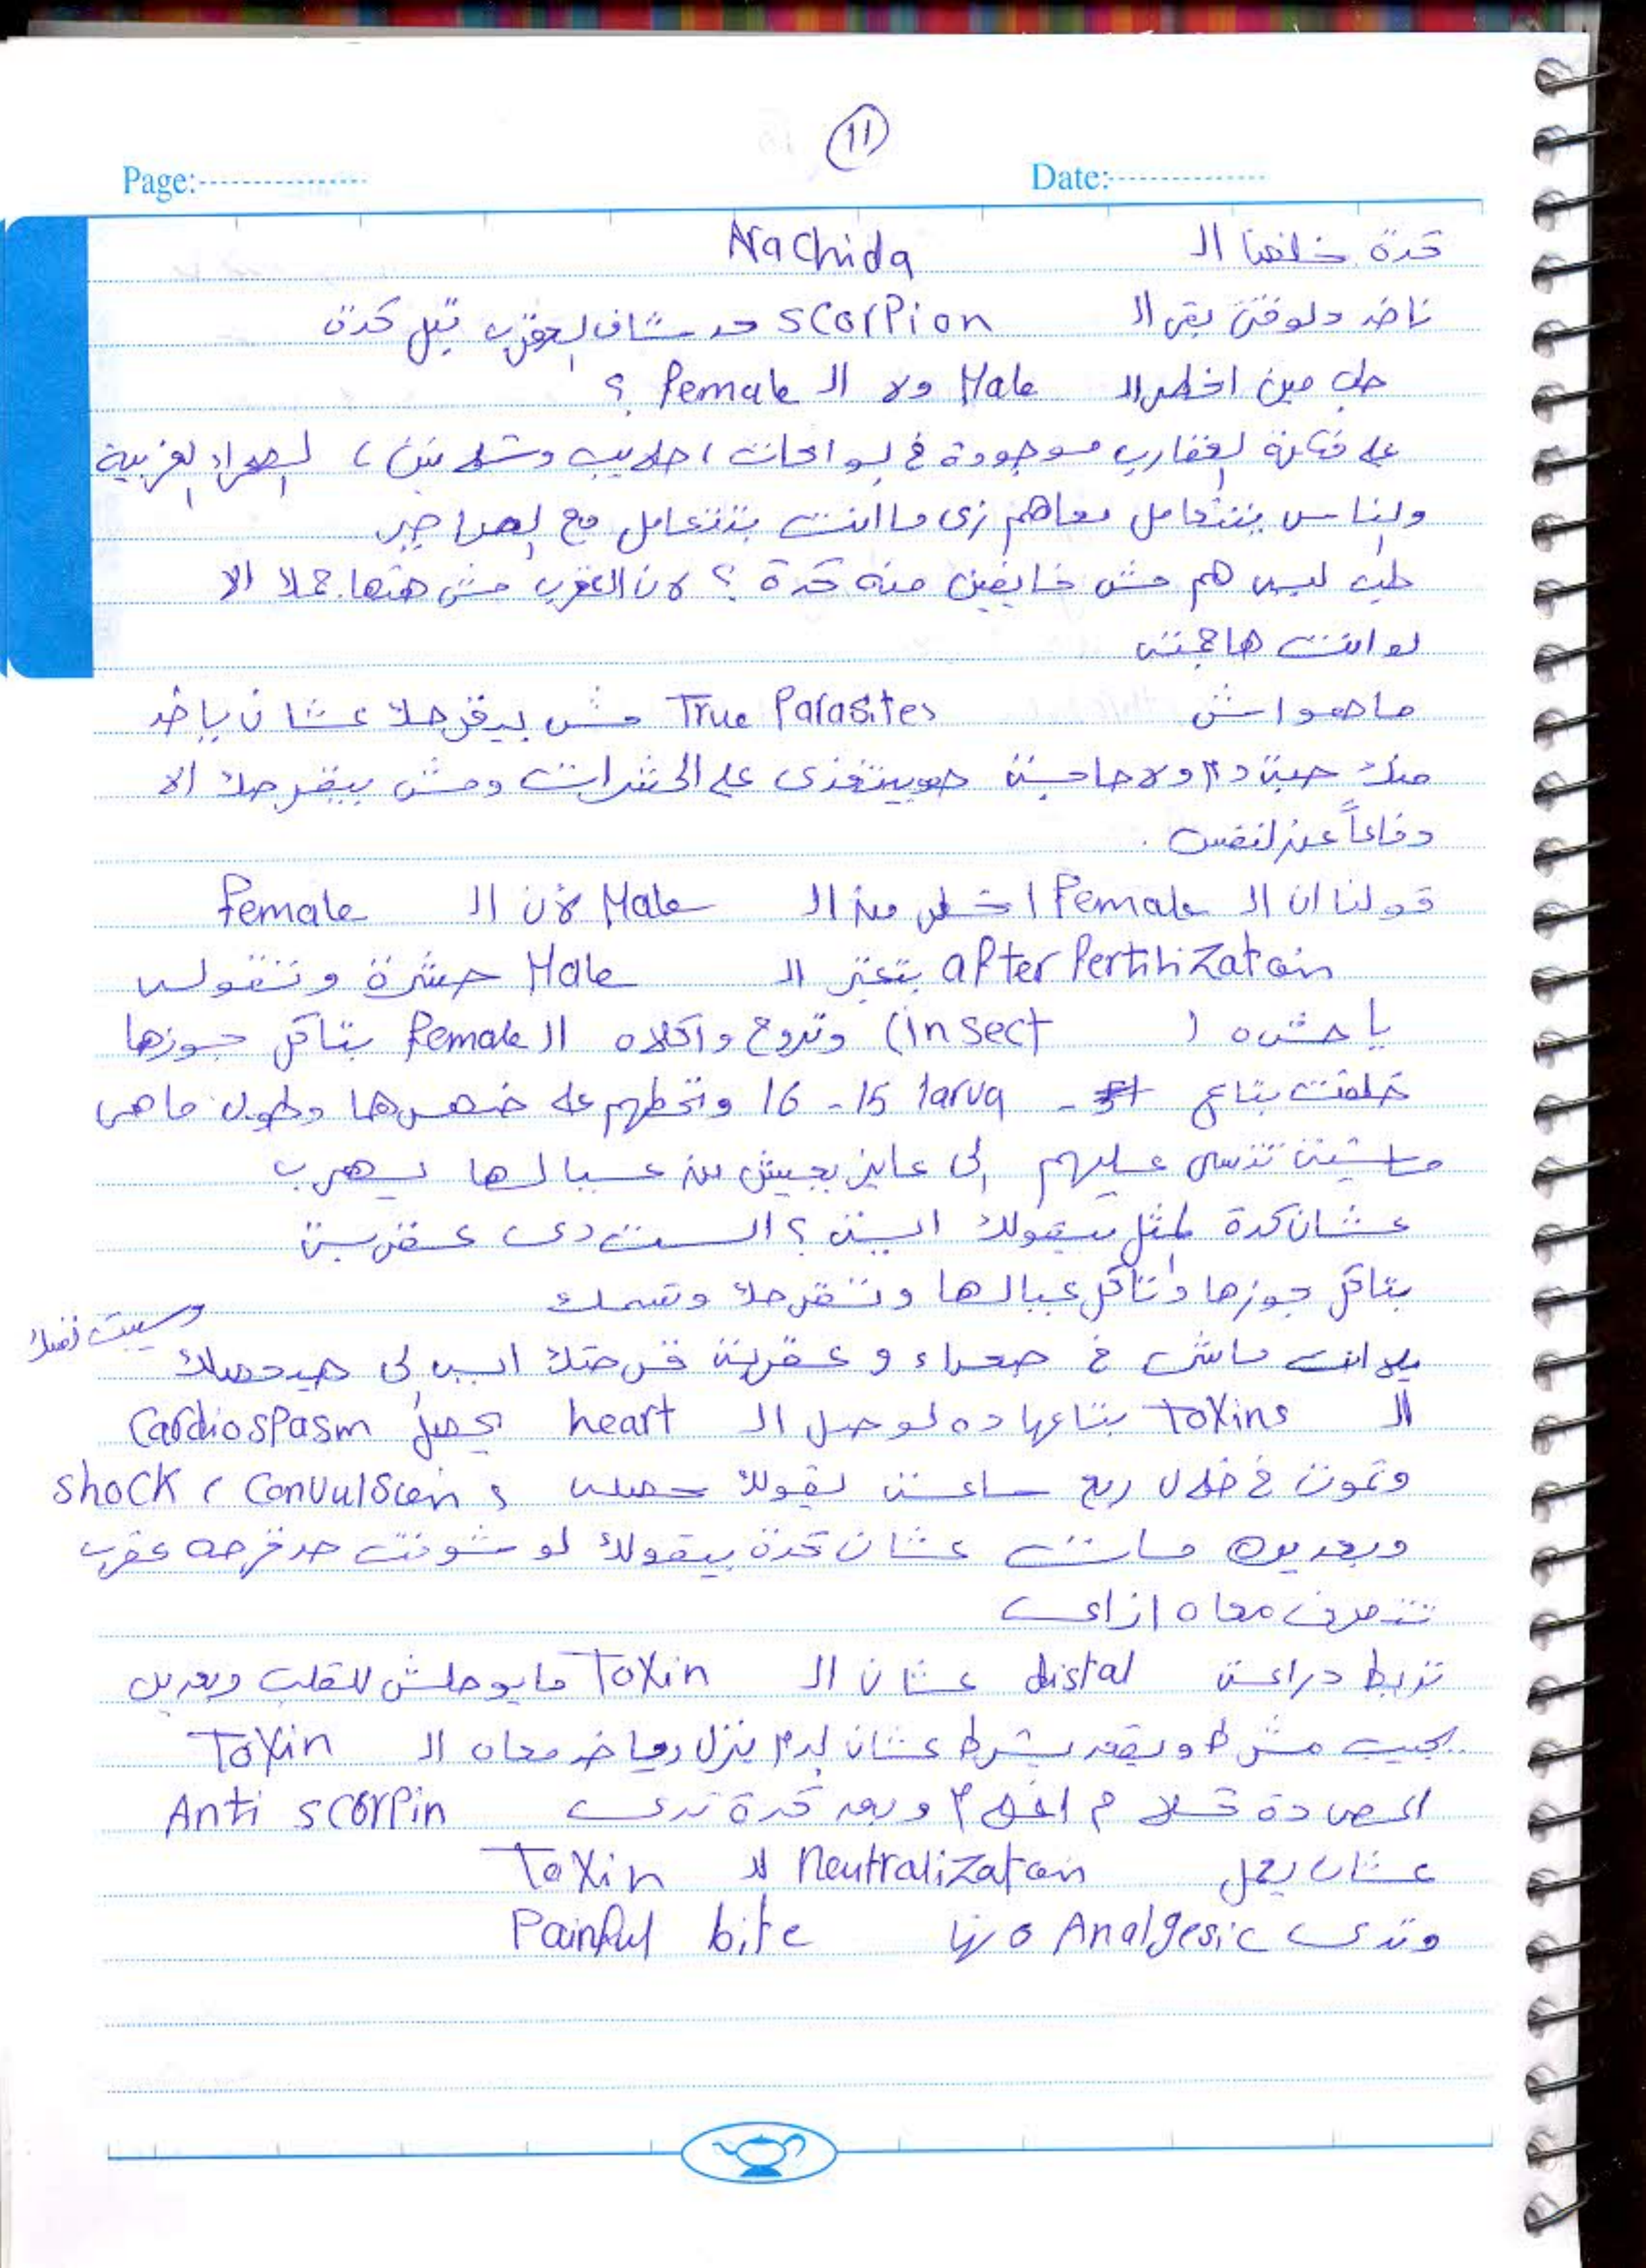 11
Page:
Date:
كدة خلصنا ال Arachida
ناخد دلوقتى بقى ال scorpion حد شاف العقرب قبل كدة
طب مين اخطر ال Male ولا ال Female ؟
على فكرة العقارب موجودة فى الواحات ، حلايب وشلاتين ، الصحراء الغربية
والناس بتتعامل معاهم زى ما انت بتتعامل مع الصراصير
طب ليه هم مش خايفين منه كدة ؟ لان العقرب مش هتهاجمك الا
لو انت هاجمته
ما هواش True Parasites مش بيقرصك عشان ياخد
منك حبة دم ولا حاجة هو بيتغذى على الحشرات ومش بيقرصك الا
دفاعاً عن النفس .
قولنا ان ال Female اخطر من ال Male لأن ال female
after fertilizatoin بتعتبر ال Male حشرة وتقوله
يا حشره ( insect ) وتروح واكلاه ال female بتاكل جوزها
خلفت بتاع 15 - 16 larva وتحطهم على ضهرها وطول ما هى
ماشية تدوس عليهم الى عايز يعيش من عيالها يهرب
عشان كدة المثل بيقولك اية ؟ الست دى عقربة
بتاكل جوزها وتاكل عيالها وتقرصك وتسمك
يلا انت ماشى فى صحراء و عقربة قرصتك ايه الى هيحصلك
وسيبت نفسك
ال Toxins بتاعها ده لو وصل ال heart يحصل Cardiospasm
وتموت فى خلال ربع ساعة يقولك حصله shock ، Convulsion ،
وبعديها ماتت عشان كدة بيقولك لو شوفت حد قرصه عقرب
تتصرف معاه ازاى
تربط دراعة distal عشان ال Toxin مايوصلش للقلب وبعدين
يجيب مشرط ويقعد يشرط عشان الدم ينزل وياخد معاه ال Toxin
وبعد كدة تدى Anti scorpin
عشان يعمل Neutralizatoin لل Toxin
وتدى Analgesic لانها Painful bite